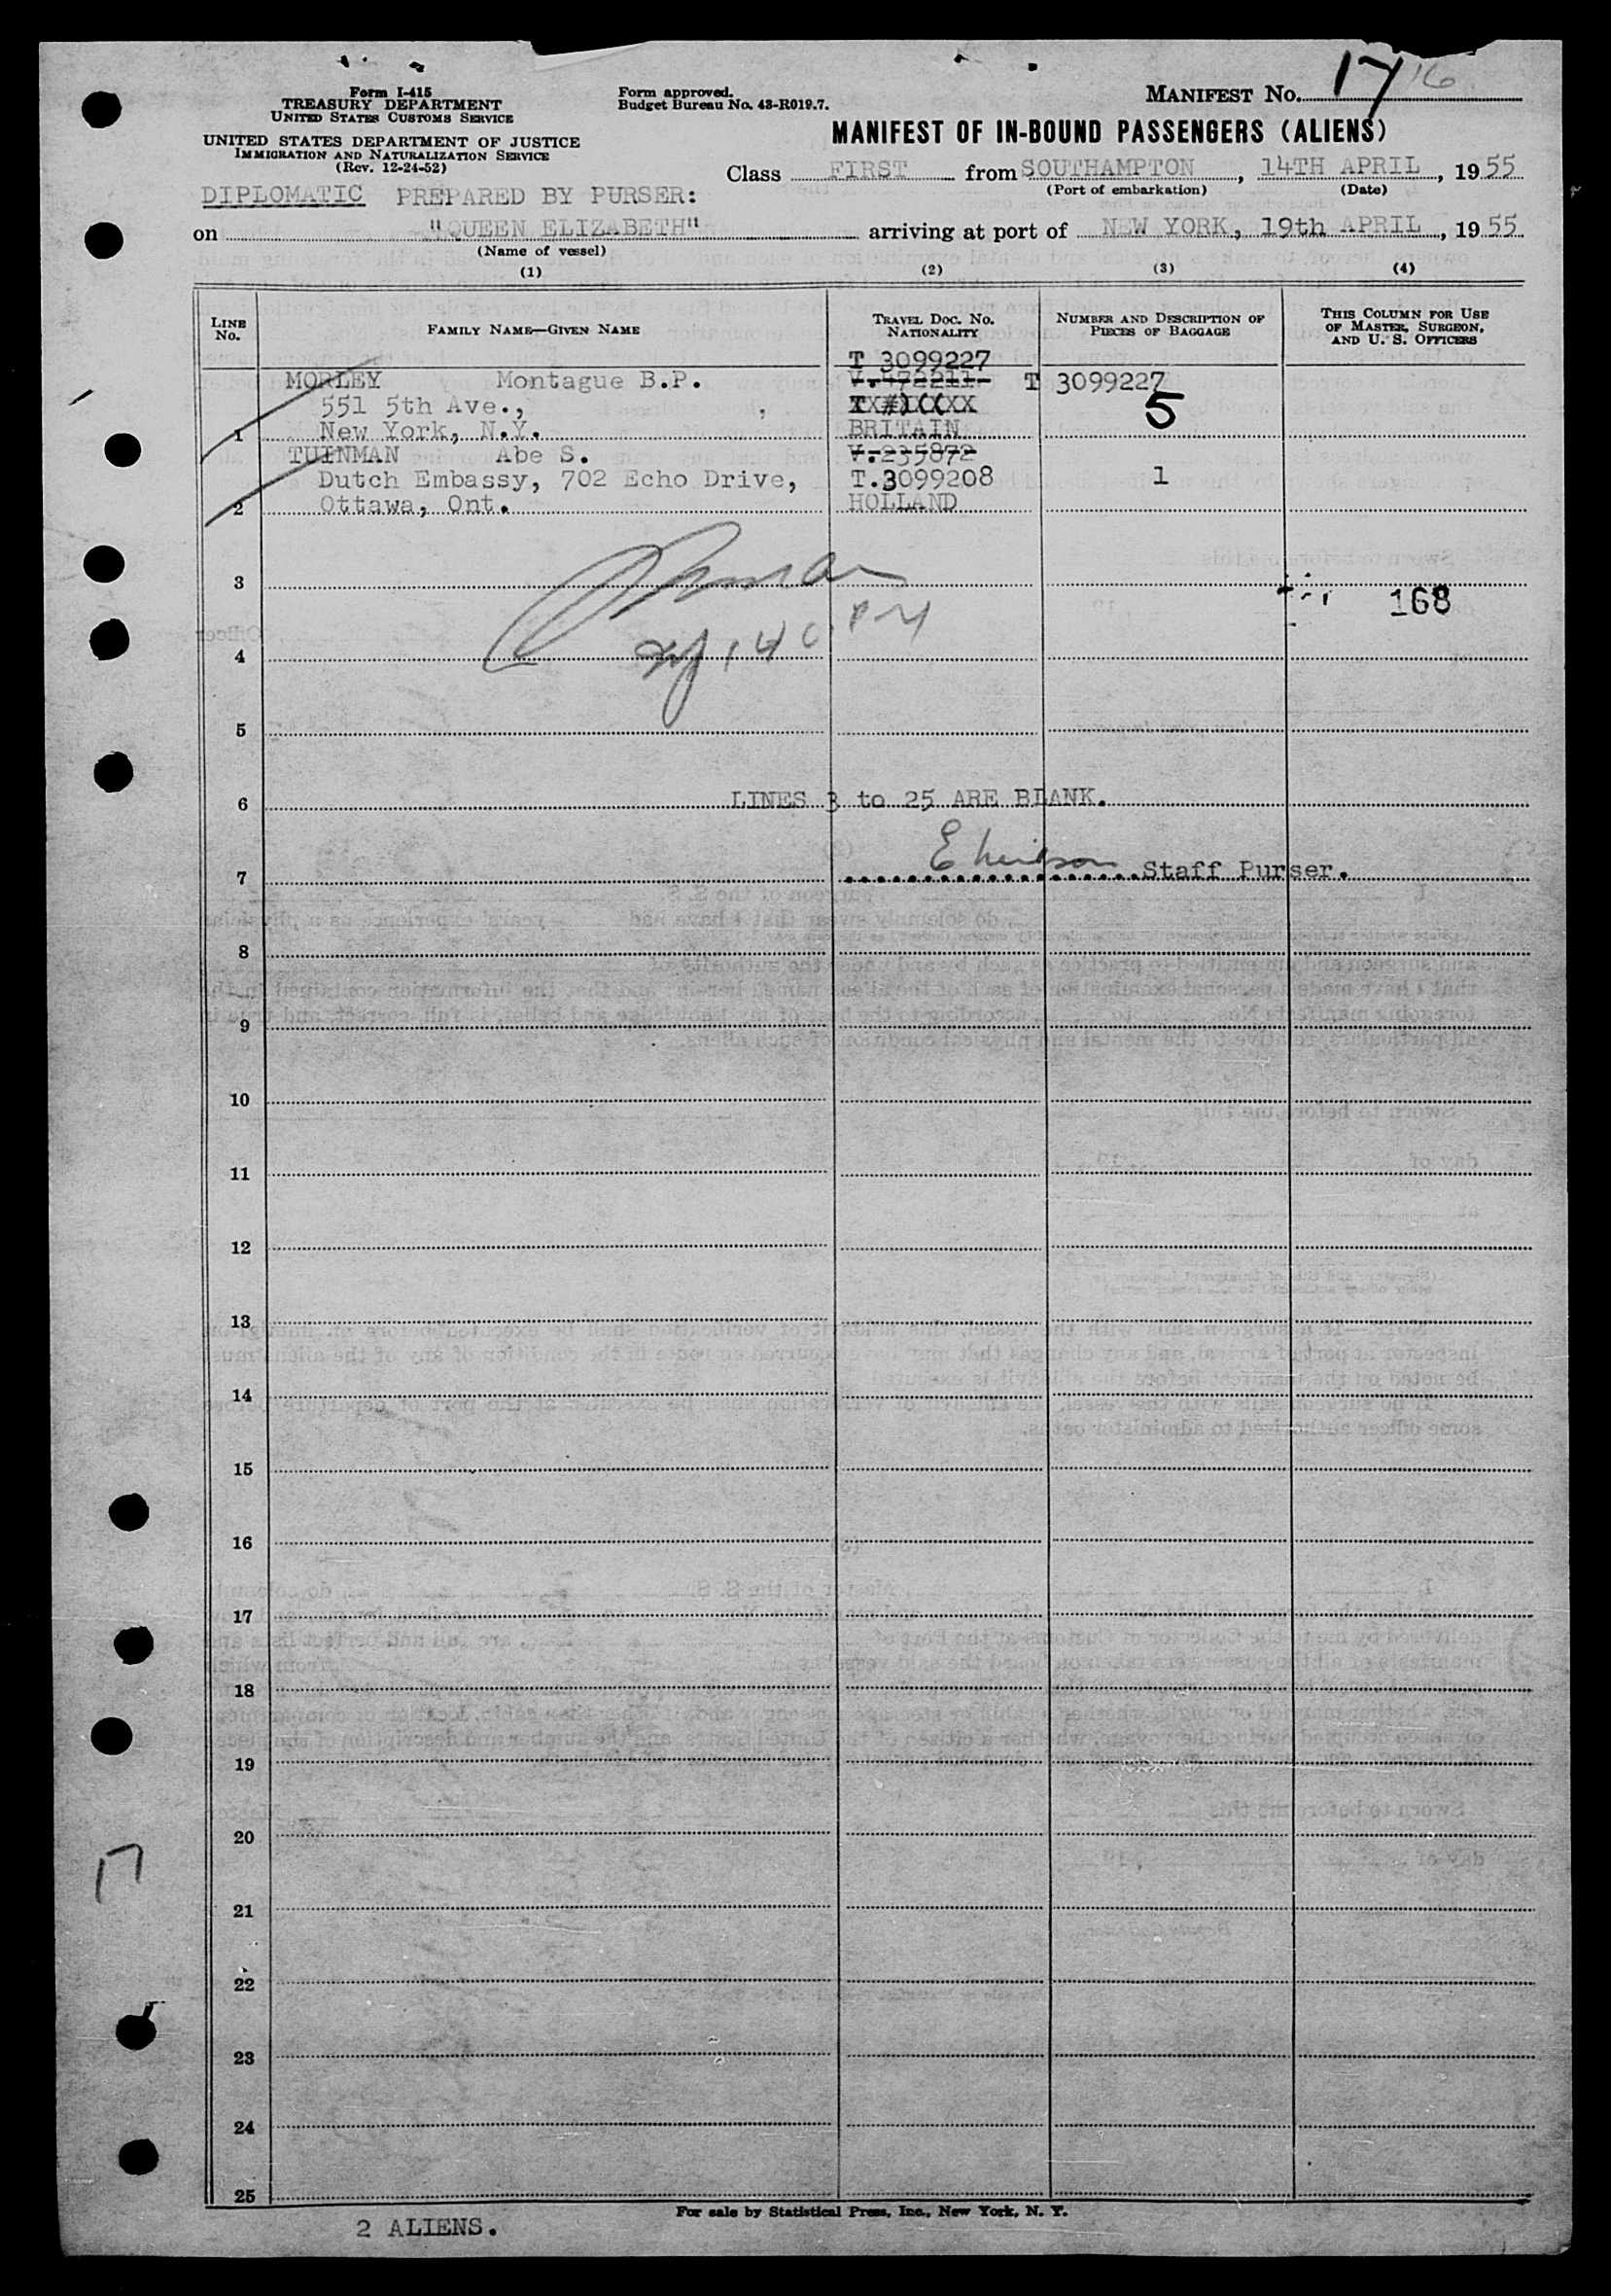 Form I-415
TREASURY DEPARTMENT
UNITED STATES CUSTOMS SERVICE
UNITED STATES DEPARTMENT OF JUSTICE
IMMIGRATION AND NATURALIZATION SERVICE
(Rev. 12-24-52)
Form approved.
Budget Bureau No. 43-R019.7.
MANIFEST NO. 17 16
MANIFEST OF IN-BOUND PASSENGERS (ALIENS)
Class FIRST from SOUTHAMPTON, 14TH APRIL, 1955
(Port of embarkation) (Date)
DIPLOMATIC PREPARED BY PURSER:
on "QUEEN ELIZABETH" arriving at port of NEW YORK, 19th APRIL, 1955
(Name of vessel)
(1) (2) (3) (4)
LINE No. FAMILY NAME—GIVEN NAME TRAVEL DOC. NO. NATIONALITY NUMBER AND DESCRIPTION OF PIECES OF BAGGAGE THIS COLUMN FOR USE OF MASTER, SURGEON, AND U. S. OFFICERS
T 3099227
MORLEY Montague B.P. V.472211 T 3099227
551 5th Ave., , 5
1 New York, N.Y. BRITAIN
TUINMAN Abe S. V.235872
Dutch Embassy, 702 Echo Drive, T.3099208 1
2 Ottawa, Ont. HOLLAND
3
168
4
5
6 LINES 3 to 25 ARE BLANK.
7 Staff Purser.
8
9
10
11
12
13
14
15
16
17
18
19
20
17
21
22
23
24
25
For sale by Statistical Press, Inc., New York, N. Y.
2 ALIENS.